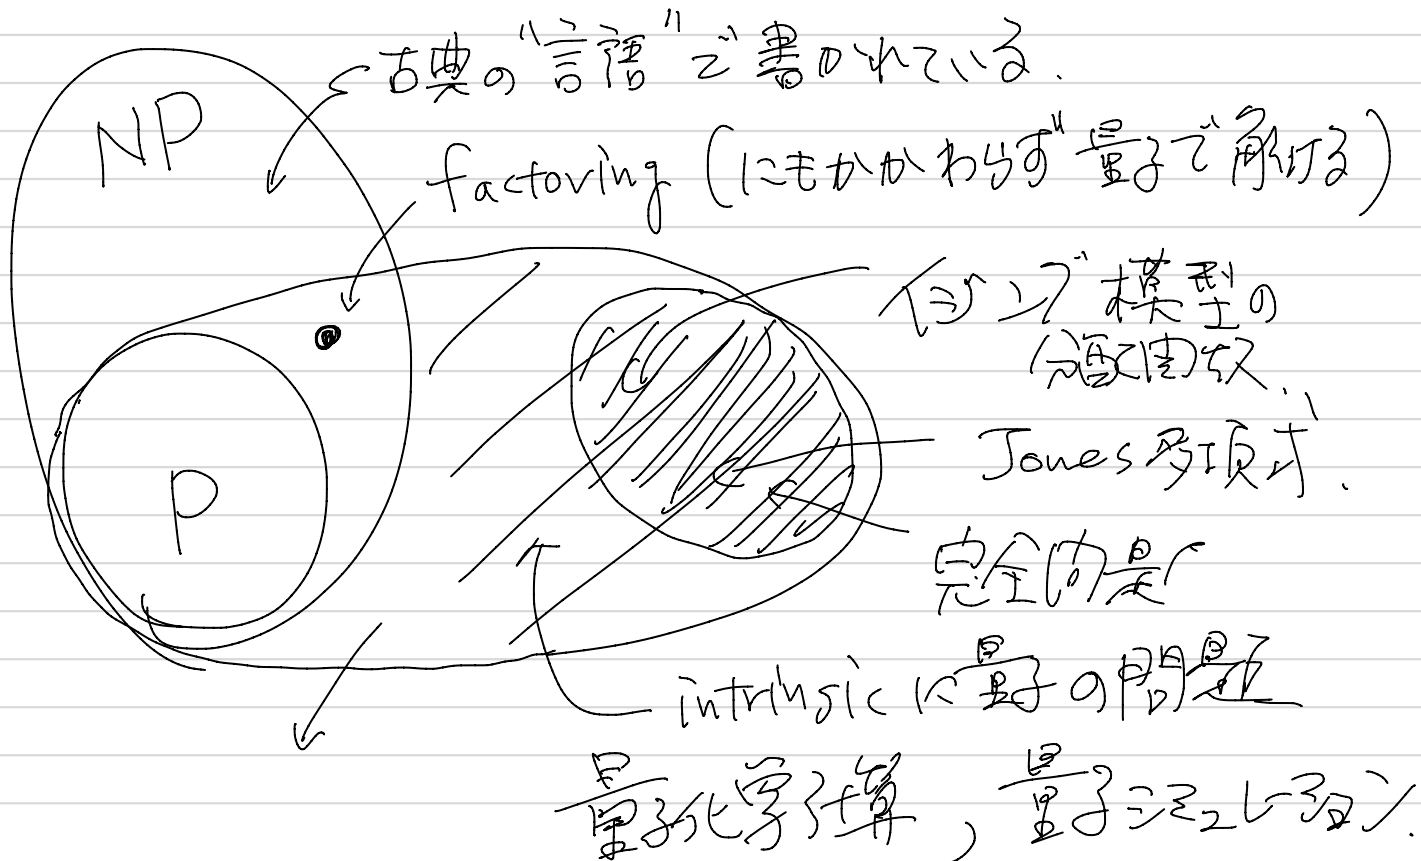 古典の"言語"で書かれている.
NP
factoring (にもかかわらず量子で解ける)
イジング模型の
分配関数.
Jones多項式.
P
完全問題
intrinsicに量子の問題
量子化学計算, 量子シミュレーション.